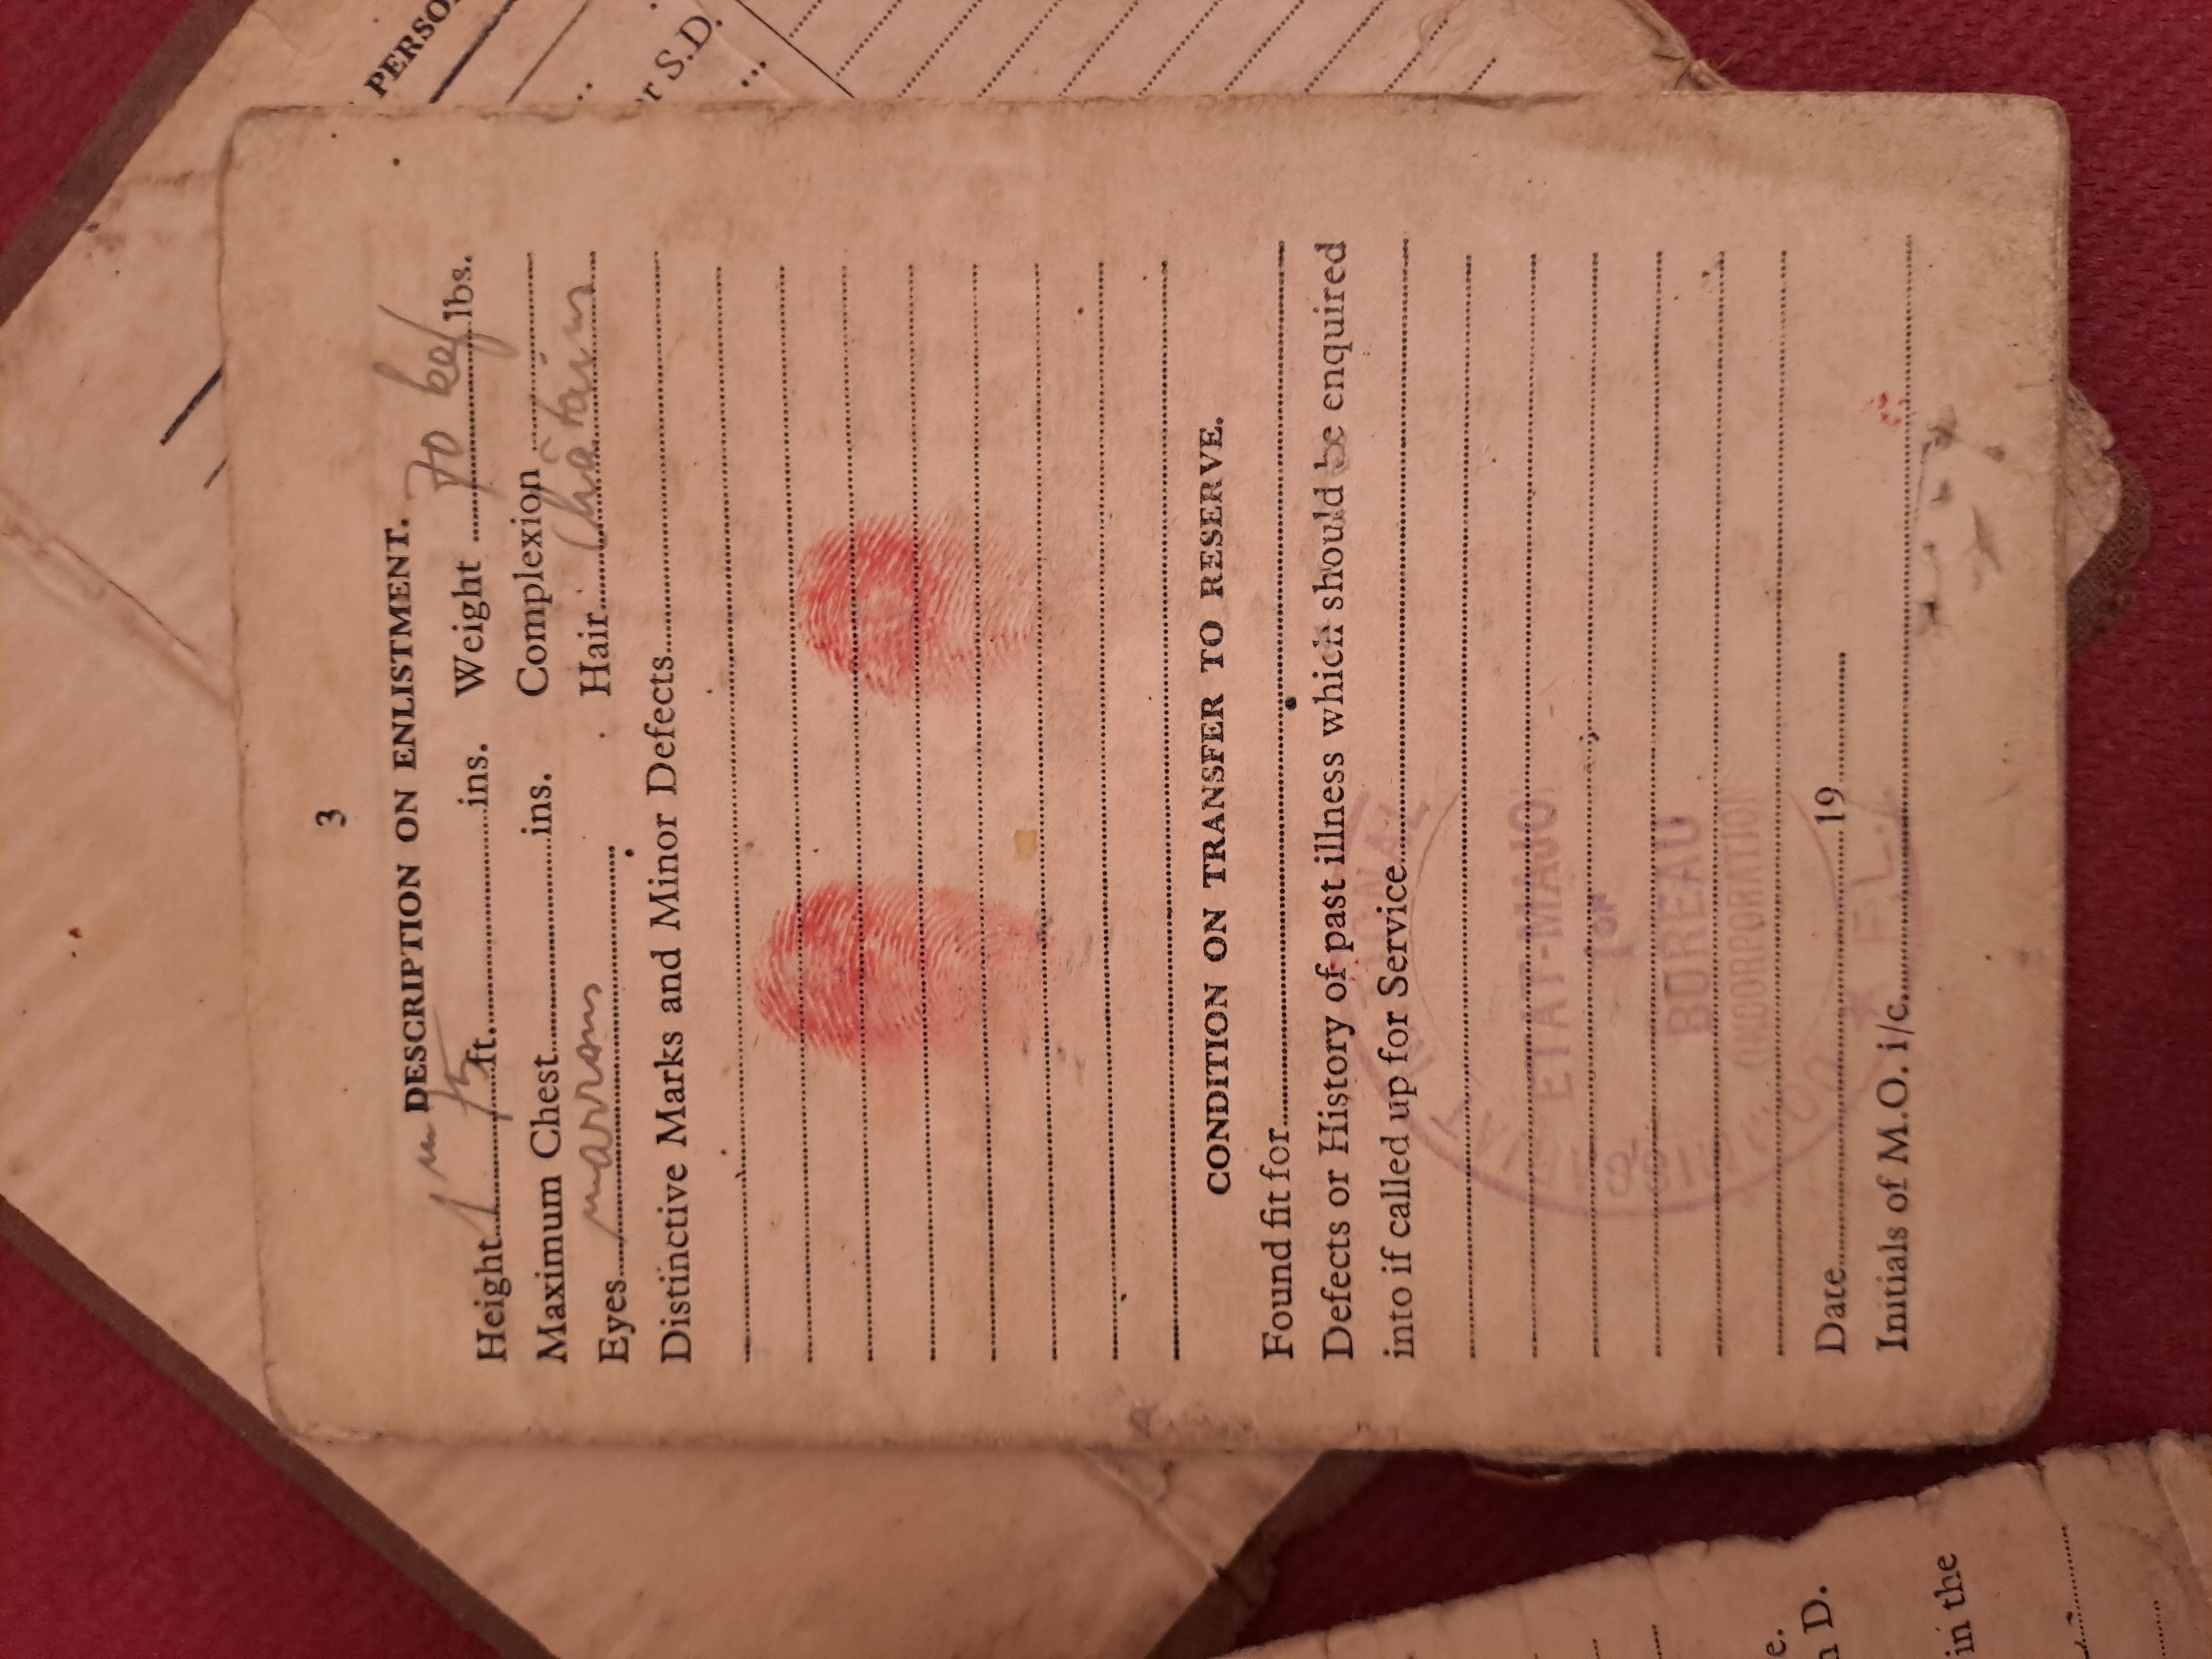 3
DESCRIPTION ON ENLISTMENT.
Height 1 m 75 ft. ins. Weight 70 kg lbs.
Maximum Chest ins. Complexion
Eyes marrons Hair Châtains
Distinctive Marks and Minor Defects
CONDITION ON TRANSFER TO RESERVE.
Found fit for
Defects or History of past illness which should be enquired
into if called up for Service
ETAT-MAJOR
1er
BUREAU
(INCORPORATION
F.L.
Date 19
Initials of M.O. i/c
PERSO
or S.D.
e.
n D.
in the